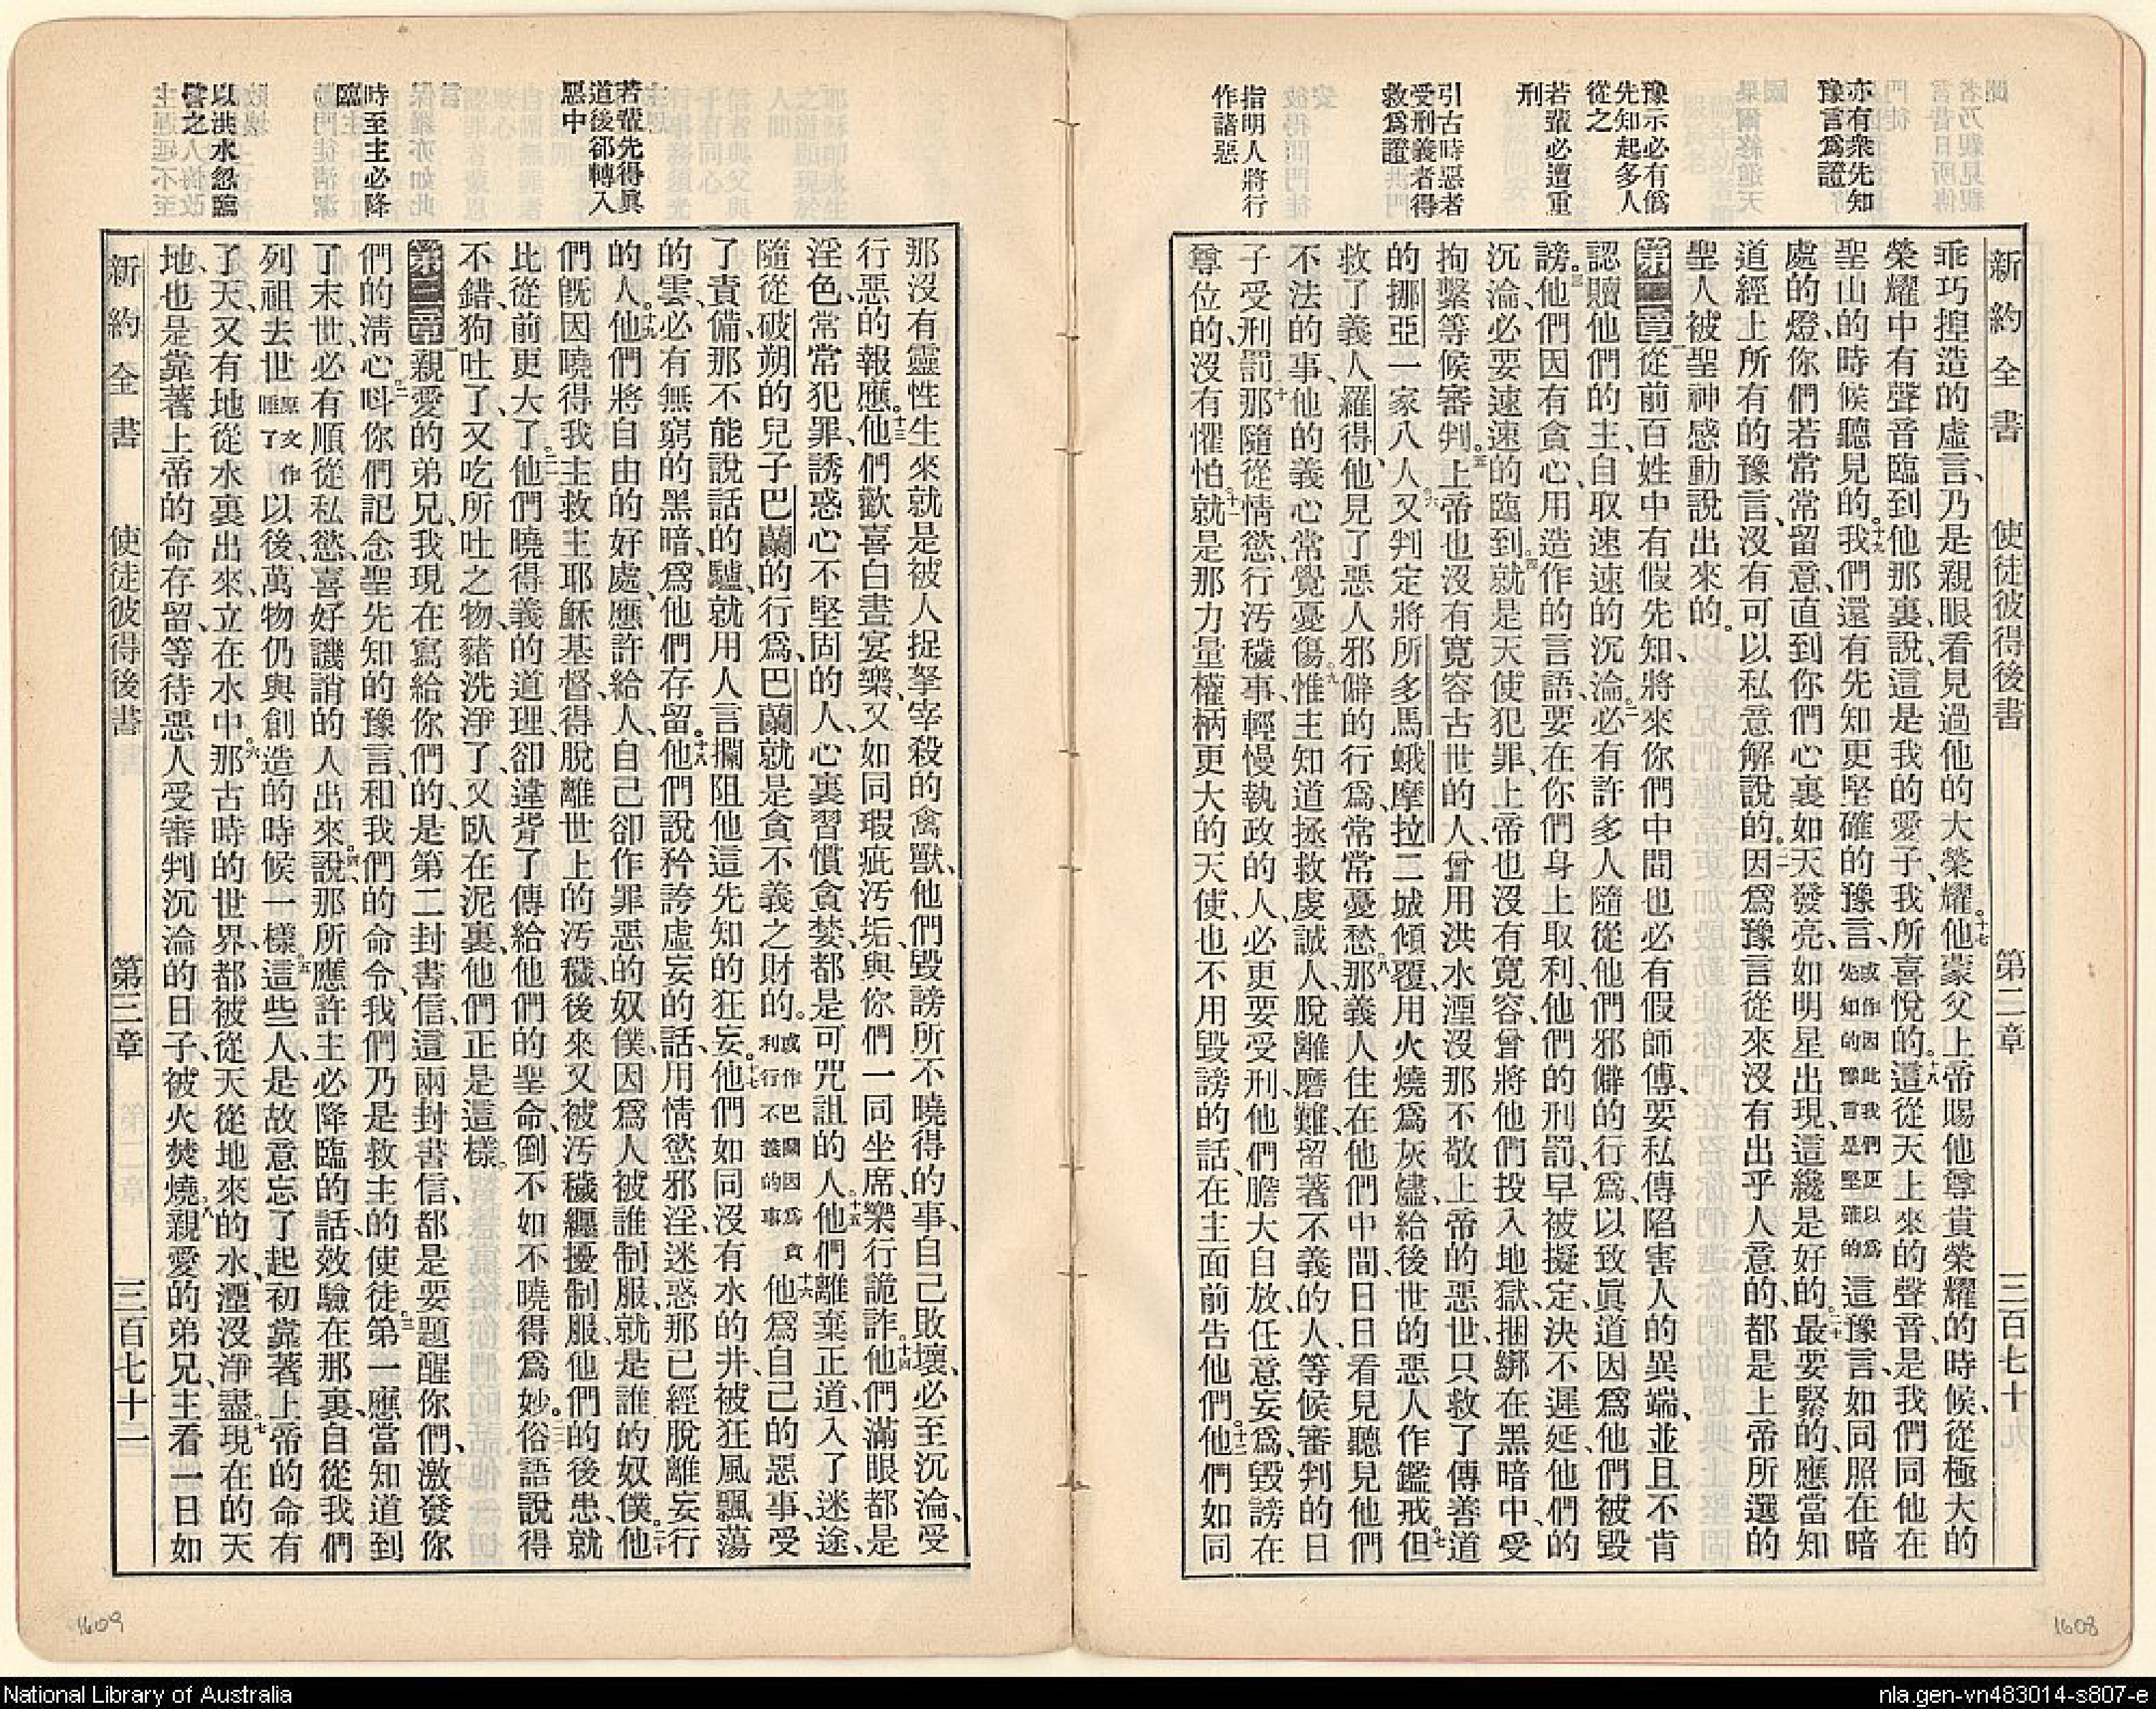 亦有衆先知
豫言爲證
豫示必有僞
先知起多人
從之
若輩必遭重
刑
引古時惡者
受刑義者得
救爲證
指明人將行
作諸惡
新約全書 使徒彼得後書 第二章 三百七十
乖巧捏造的虛言、乃是親眼看見過他的大榮耀。十七他蒙父上帝賜他尊貴榮耀的時候、從極大的
榮耀中有聲音臨到他那裏說、這是我的愛子、我所喜悅的。十八這從天上來的聲音、是我們同他在
聖山的時候聽見的。十九我們還有先知更堅確的豫言、或作因此我們更以爲先知的豫言是堅確的這豫言如同照在暗
處的燈、你們若常常留意、直到你們心裏如天發亮、如明星出現、這纔是好的。二十最要緊的、應當知
道經上所有的豫言、沒有可以私意解說的。二一因爲豫言從來沒有出乎人意的、都是上帝所選的
聖人被聖神感動說出來的。
第二章一從前百姓中有假先知、將來你們中間也必有假師傅、要私傳陷害人的異端、並且不肯
認贖他們的主、自取速速的沉淪。二必有許多人隨從他們邪僻的行爲、以致眞道因爲他們被毀
謗。三他們因有貪心、用造作的言語、要在你們身上取利、他們的刑罰、早被擬定、決不遲延、他們的
沉淪、必要速速的臨到。四就是天使犯罪、上帝也沒有寬容、曾將他們投入地獄、捆綁在黑暗中、受
拘繫等候審判。五上帝也沒有寬容古世的人、曾用洪水湮沒那不敬上帝的惡世、只救了傳善道
的挪亞一家八人。六又判定將所多馬蛾摩拉二城傾覆、用火燒爲灰燼、給後世的惡人作鑑戒。七但
救了義人羅得、他見了惡人邪僻的行爲、常常憂愁。八那義人住在他們中間、日日看見聽見他們
不法的事、他的義心常覺憂傷。九惟主知道拯救虔誠人、脫離磨難、留著不義的人、等候審判的日
子受刑罰。十那隨從情慾、行汚穢事、輕慢執政的人、必更要受刑、他們膽大自放、任意妄爲、毀謗在
尊位的、沒有懼怕。十一就是那力量權柄更大的天使、也不用毀謗的話、在主面前告他們。十二他們如同
1608
若輩先得眞
道後卻轉入
惡中
時至主必降
臨
以洪水忽臨
譬之
新約全書 使徒彼得後書 第三章 三百七十二
那沒有靈性生來就是被人捉拏宰殺的禽獸、他們毀謗所不曉得的事、自己敗壞、必至沉淪、受
行惡的報應。十三他們歡喜白晝宴樂、又如同瑕疵汚垢、與你們一同坐席、樂行詭詐。十四他們滿眼都是
淫色、常常犯罪、誘惑心不堅固的人、心裏習慣貪婪、都是可咒詛的人。十五他們離棄正道、入了迷途、
隨從破朔的兒子巴蘭的行爲、巴蘭就是貪不義之財的。或作巴蘭因爲貪利行不義的事十六他爲自己的惡事、受
了責備、那不能說話的驢、就用人言攔阻他這先知的狂妄。十七他們如同沒有水的井、被狂風飄蕩
的雲、必有無窮的黑暗、爲他們存留。十八他們說矜誇虛妄的話、用情慾邪淫、迷惑那已經脫離妄行
的人。十九他們將自由的好處、應許給人、自己卻作罪惡的奴僕、因爲人被誰制服、就是誰的奴僕。二十他
們旣因曉得我主救主耶穌基督、得脫離世上的汚穢、後來又被汚穢纏擾制服、他們的後患、就
比從前更大了。二一他們曉得義的道理、卻違背了傳給他們的聖命、倒不如不曉得爲妙。二二俗語說得
不錯、狗吐了、又吃所吐之物、豬洗淨了、又臥在泥裏、他們正是這樣。
第三章一親愛的弟兄、我現在寫給你們的、是第二封書信、這兩封書信、都是要題醒你們、激發你
們的淸心。二呌你們記念聖先知的豫言、和我們的命令、我們乃是救主的使徒。三第一應當知道到
了末世、必有順從私慾、喜好譏誚的人出來說。四那所應許主必降臨的話、效驗在那裏、自從我們
列祖去世原文作睡了以後、萬物仍與創造的時候一樣。五這些人、是故意忘了起初靠著上帝的命有
了天、又有地從水裏出來、立在水中。六那古時的世界、都被從天從地來的水、湮沒淨盡。七現在的天
地、也是靠著上帝的命存留、等待惡人受審判沉淪的日子、被火焚燒。八親愛的弟兄、主看一日如
1609
National Library of Australia
nla.gen-vn483014-s807-e